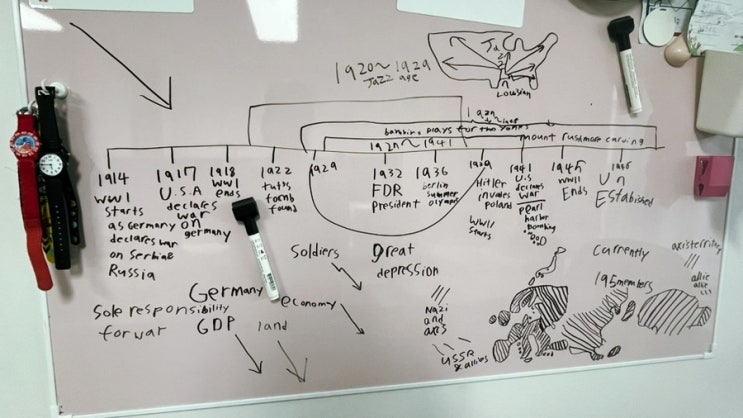 1920~1929
Jazz age
Jazz
Louisian
bambino plays for the Yanks
mount rushmore carving
1914
WW1
starts
as Germany
declares war
on Serbia &
Russia
1917
U.S.A
declares
war
on
germany
1918
WW1
ends
1922
tut's
tomb
found
1929
1932
FDR
president
1936
berlin
summer
olympics
Hitler
invades
poland
WWII
starts
1941
U.S
declares
war
pearl
harbor
bombing
1945
WWII
Ends
UN
Established
Soldiers
Great
depression
Germany
economy
Sole responsibility
for war
GDP
land
Nazi
and
axis
USSR
& allies
Currently
195 members
axis territory
allie